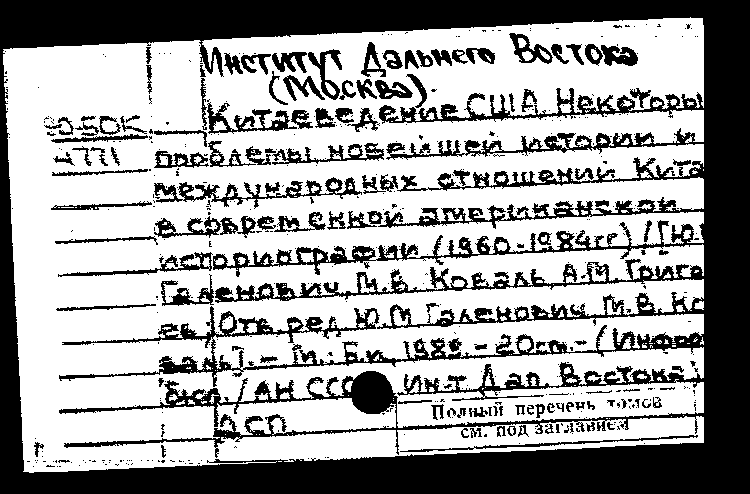 Институт Дальнего Востока
(Москва).
Китаеведение США. Некоторы
проблемы новейшей истории и
4771
международных отношений Кита
в современной американской
историографии (1960-1984гг) / [Ю.
Галенович, М.В. Коваль, А.М. Григо
ев; Отв. ред Ю.М Галенович, М.В. Ко
валь]. - М.: Б.и, 198 . - 20см. - (Инфор
бюл. / АН ССС Ин-т Дал. Востока)
ДСП.
Полный перечень томов
см. под заглавием